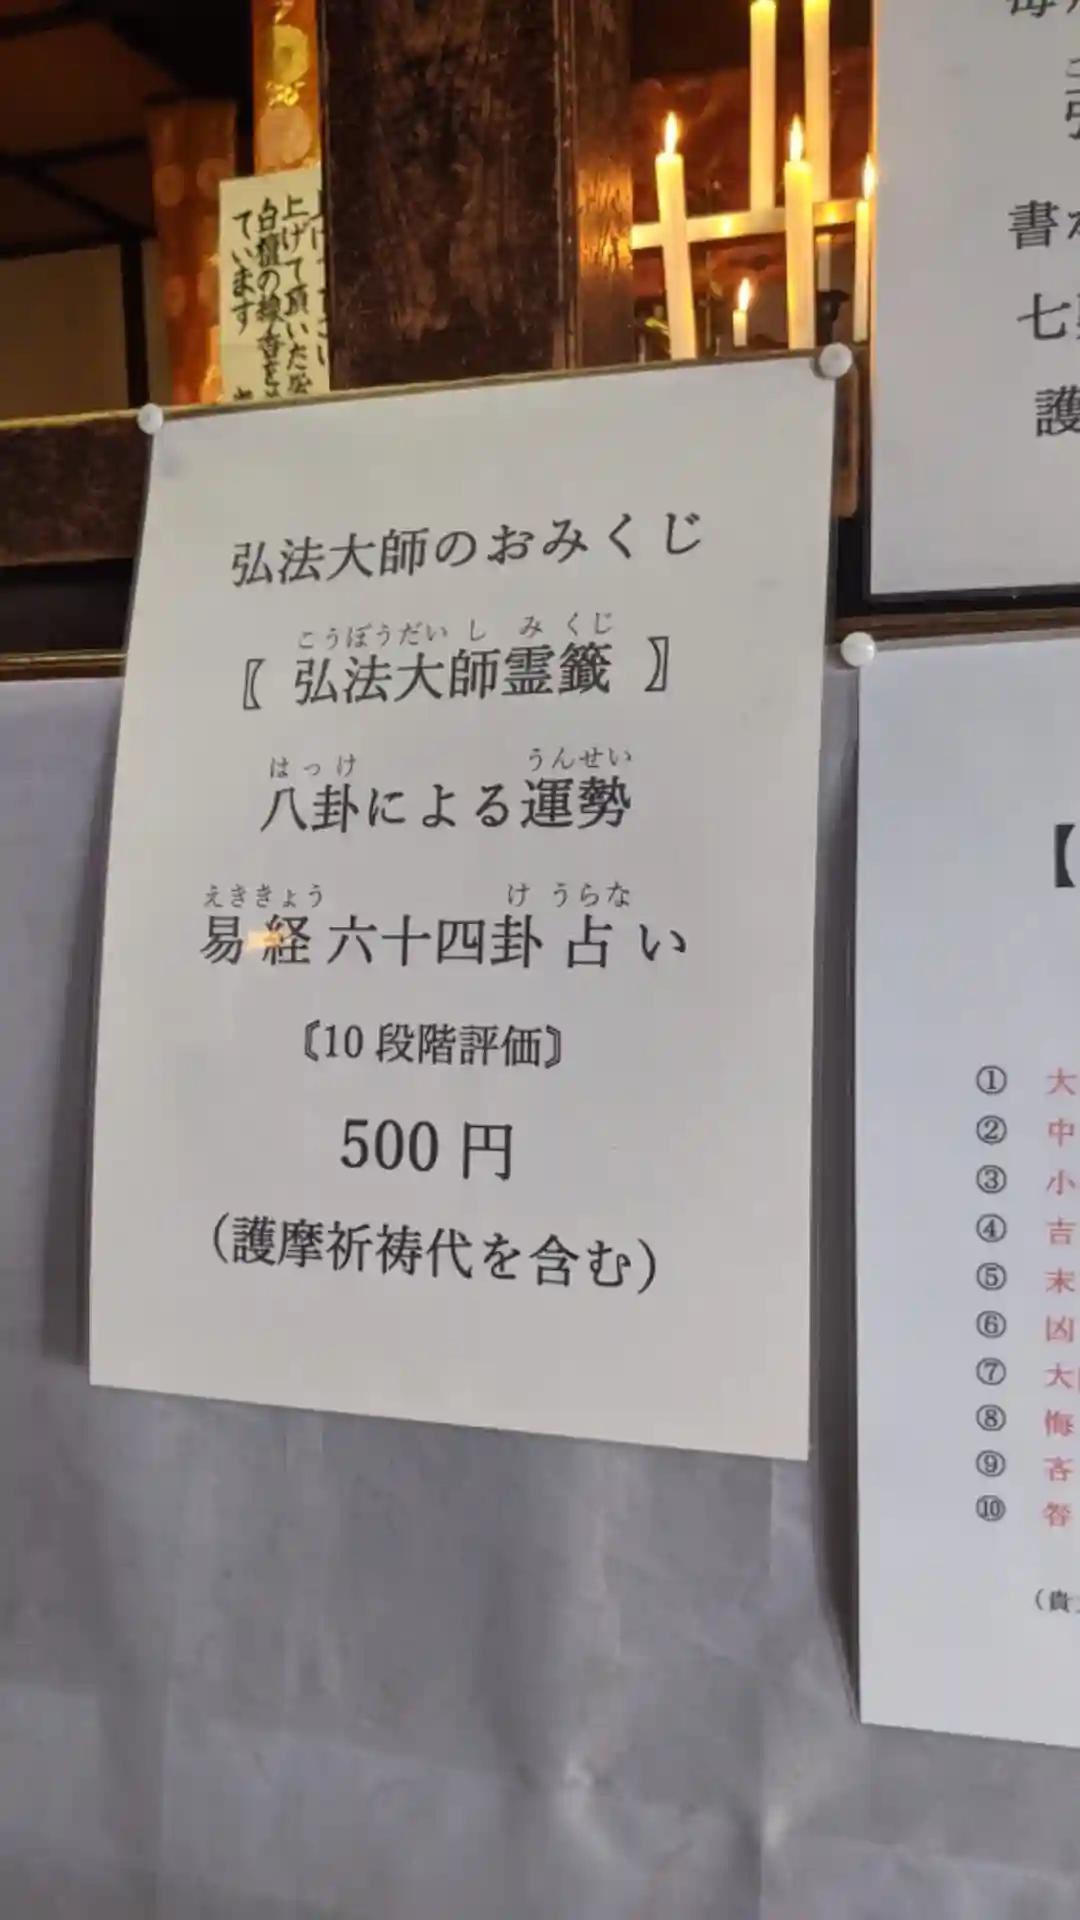 上げて頂いた
白檀の線香を
ています
弘法大師のおみくじ
こうぼうだいし みくじ
〖 弘法大師霊籤 〗
はっけ うんせい
八卦による運勢
えききょう け うらな
易経六十四卦占い
〘10段階評価〙
500円
(護摩祈祷代を含む)
書
七
護
【
① 大
② 中
③ 小
④ 吉
⑤ 末
⑥ 凶
⑦ 大
⑧ 悔
⑨ 吝
⑩ 咎
(貴